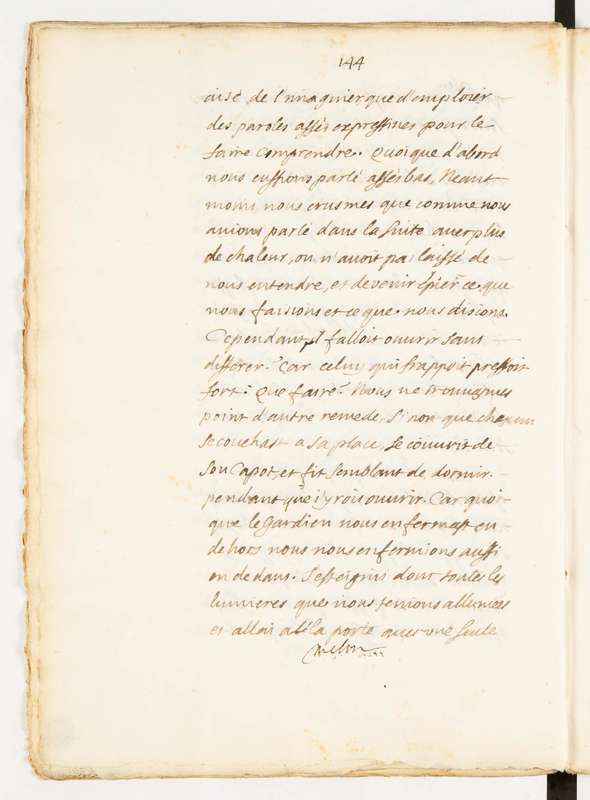 144
aisé de l'imaginer que d'emploier
des paroles assés expressives pour le
faire comprendre. Quoique d'abord
nous eussions parlé assés bas, Neant
moins nous crusmes que comme nous
avions parlé dans la suite avec plus
de chaleur, on n'avoit pas laissé de
nous entendre, et de venir épier ce que
nous faisions et ce que nous disions.
Cependant il falloit ouvrir sans
differer. Car celuy qui frappoit pressoit
fort: Que faire? Nous ne trouvasmes
point d'autre remede, si non que chacun
se couchast a sa place, se couvrit de
son capot, et fit semblant de dormir
pendant que i'yrois ouvrir. Car quoi
que le Gardien nous enfermast en
dehors nous nous enfermions aussi
en dedans. J'esteignis donc toutes les
lumieres que nous tenions allumées
et allai a la porte avec une suite